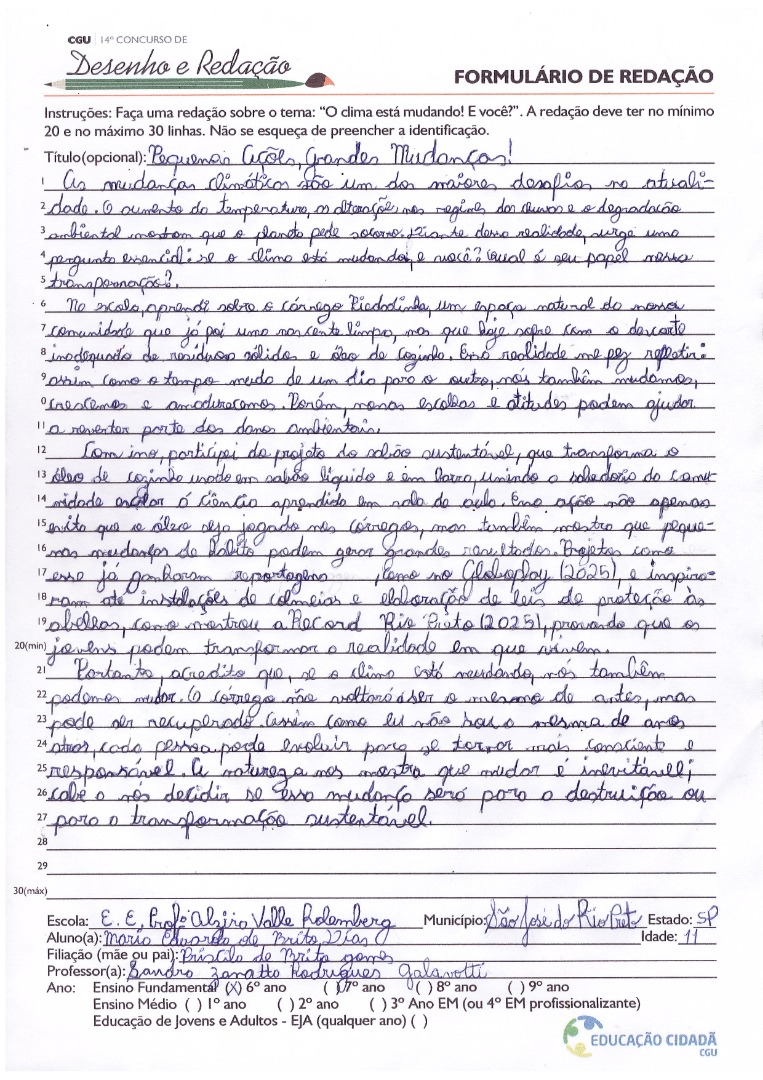 CGU | 14º CONCURSO DE
Desenho e Redação
FORMULÁRIO DE REDAÇÃO
Instruções: Faça uma redação sobre o tema: "O clima está mudando! E você?". A redação deve ter no mínimo
20 e no máximo 30 linhas. Não se esqueça de preencher a identificação.
Título(opcional): Pequenas Ações, Grandes Mudanças!
1 As mudanças climáticas são um dos maiores desafios na atuali-
2 dade. O aumento da temperatura, as alterações nos regimes das chuvas e a degradação
3 ambiental mostram que o planeta pede socorro. Diante dessa realidade, surge uma
4 pergunta essencial: se o clima está mudando, e você? Qual é seu papel nessa
5 transformação?.
6 Na escola, aprendi sobre o córrego Piedadinha, um espaço natural da nossa
7 comunidade que já foi uma nascente limpa, mas que hoje sofre com o descarte
8 inadequado de resíduos sólidos e óleo de cozinha. Essa realidade me fez refletir:
9 assim como o tempo muda de um dia para o outro, nós também mudamos,
0 crescemos e amadurecemos. Porém, nossas escolhas e atitudes podem ajudar
11 a reverter parte dos danos ambientais.
12 Com isso, participei do projeto do sabão sustentável, que transforma o
13 óleo de cozinha usado em sabão líquido e em barra, unindo a sabedoria da comu
14 nidade escolar á Ciência aprendida em sala de aula. Essa ação não apenas
15 evita que o óleo seja jogado nos córregos, mas também mostra que peque-
16 nas mudanças de hábito podem gerar grandes resultados. Projetos como
17 esse já ganharam reportagens , como no Globoplay (2025), e inspira-
18 ram até instalações de colmeias e elaboração de leis de proteção às
19 abelhas, como mostrou a Record Rio Preto (2025), provando que os
20(min) jovens podem transformar a realidade em que vivem.
21 Portanto, acredito que, se o clima está mudando, nós também
22 podemos mudar. O córrego não voltará a ser o mesmo de antes, mas
23 pode ser recuperado. Assim como eu não sou a mesma de anos
24 atras, cada pessoa pode evoluir para se tornar mais consciente e
25 responsável. A natureza nos mostra que mudar é inevitável;
26 cabe a nós decidir se essa mudança será para a destruição ou
27 para a transformação sustentável.
28
29
30(máx)
Escola: E. E. Profº Alzira Valle Rolemberg Município: São José do Rio Preto Estado: SP
Aluno(a): Maria Eduarda de Brito Dias Idade: 11
Filiação (mãe ou pai): Priscila de Brito gomes
Professor(a): Sandra Zanatto Rodrigues Galavotti
Ano: Ensino Fundamental (X) 6º ano ( ) 7º ano ( ) 8º ano ( ) 9º ano
Ensino Médio ( ) 1º ano ( ) 2º ano ( ) 3º Ano EM (ou 4º EM profissionalizante)
Educação de Jovens e Adultos - EJA (qualquer ano) ( )
EDUCAÇÃO CIDADÃ
CGU